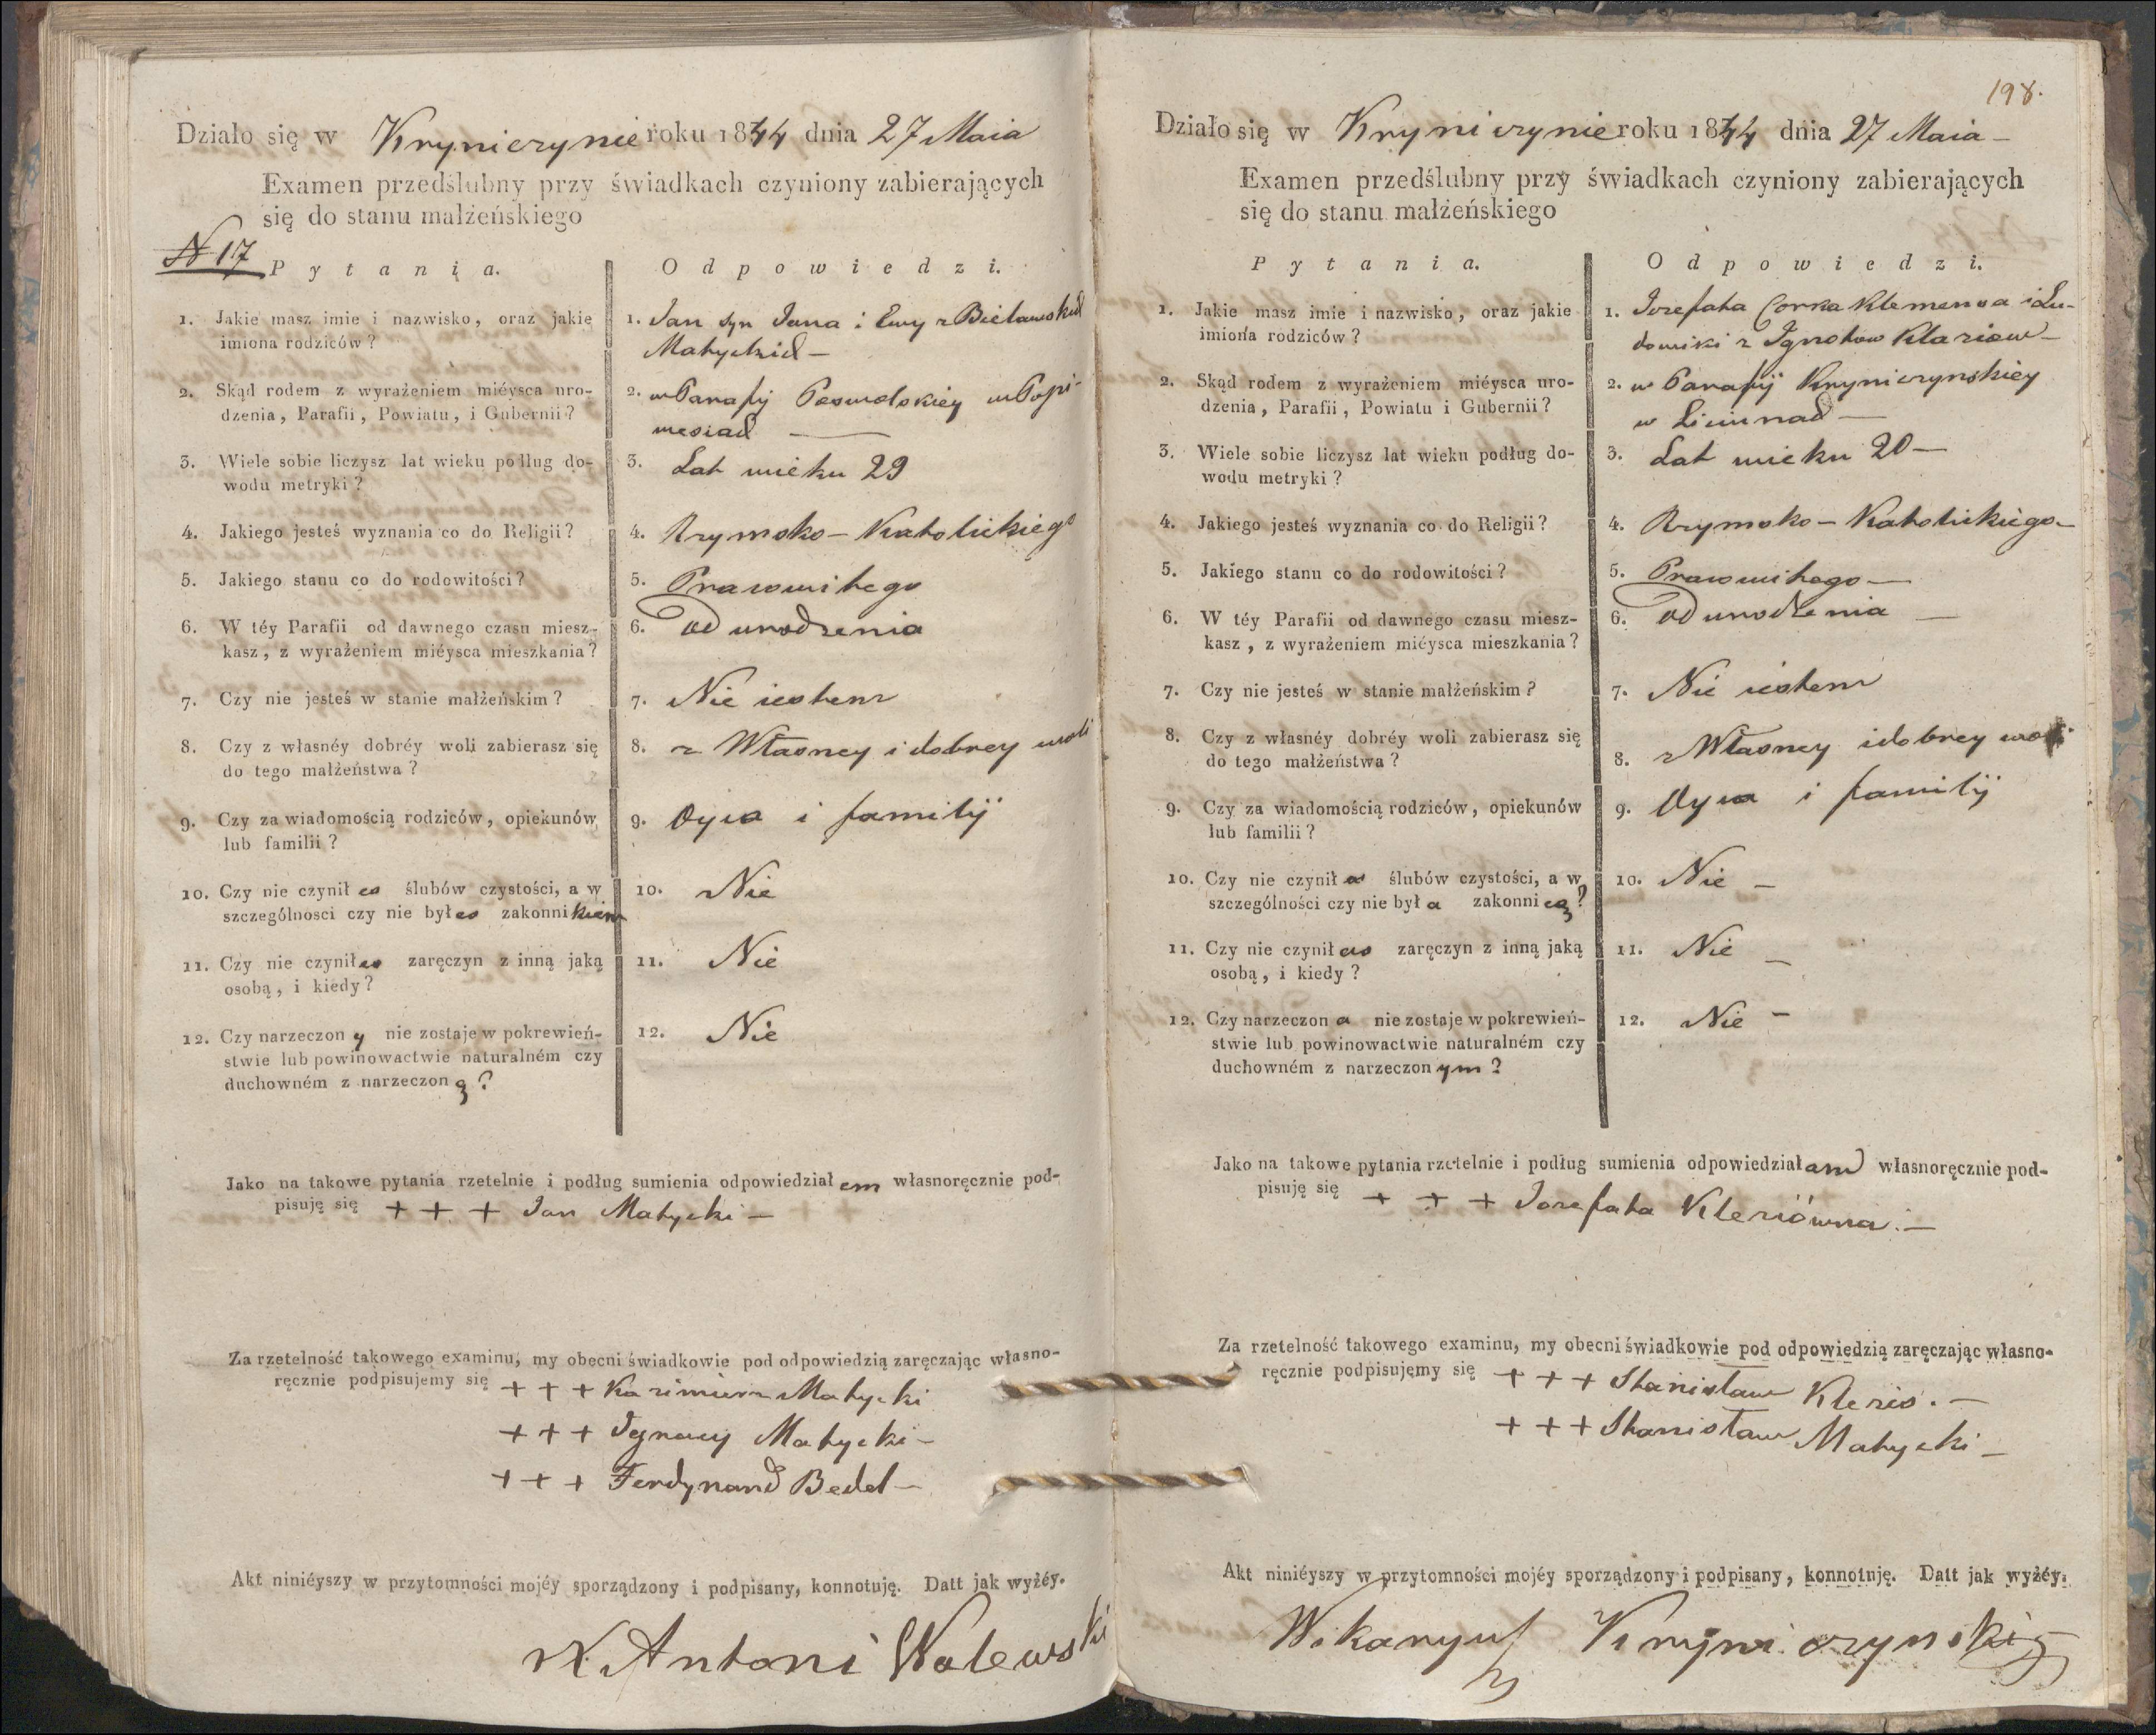 Działo się w Kryniczynie roku 1844 dnia 27 Maia
Examen przedślubny przy świadkach czyniony zabierających
się do stanu małżeńskiego
N 17
Pytania.
Odpowiedzi.
1. Jakie masz imie i nazwisko, oraz jakie
imiona rodziców?
1. Jan syn Jana i Ewy z
Matyckich –
2. Skąd rodem z wyrażeniem miéysca uro-
dzenia, Parafii, Powiatu, i Gubernii?
2. w Parafij
3. Wiele sobie liczysz lat wieku podług do-
wodu metryki?
3. Lat wieku 29
4. Jakiego jesteś wyznania co do Religii?
4. Rzymsko – Katolickiego
5. Jakiego stanu co do rodowitości?
5. Prawowitego
6. W téy Parafii od dawnego czasu miesz-
kasz, z wyrażeniem miéysca mieszkania?
6. od urodzenia
7. Czy nie jesteś w stanie małżeńskim?
7. Nie iestem
8. Czy z własnéy dobréy woli zabierasz się
do tego małżeństwa?
8. z Własney i dobrey woli
9. Czy za wiadomością rodziców, opiekunów,
lub familii?
9. Oyca i familij
10. Czy nie czynił es ślubów czystości, a w
szczególnosci czy nie był es zakonnikiem
10. Nie
11. Czy nie czynił es zaręczyn z inną jaką
osobą, i kiedy?
11. Nie
12. Czy narzeczon y nie zostaje w pokrewień-
stwie lub powinowactwie naturalném czy
duchowném z narzeczon ą?
12. Nie
Jako na takowe pytania rzetelnie i podług sumienia odpowiedział em własnoręcznie pod-
pisuję się + + + Jan Matycki –
Za rzetelność takowego examinu, my obecni świadkowie pod odpowiedzią zaręczając własno-
ręcznie podpisujemy się + + + Kazimierz Matycki
+ + + Ignacy Matycki –
+ + + Ferdynand Bedel –
Akt niniéyszy w przytomności mojéy sporządzony i podpisany, konnotuję. Datt jak wyżéy.
X. Antoni Walewski
198.
Działo się w Kryniczynie roku 1844 dnia 27 Maia –
Examen przedślubny przy świadkach czyniony zabierających
się do stanu małżeńskiego
Pytania.
Odpowiedzi.
1. Jakie masz imie i nazwisko, oraz jakie
imiona rodziców?
1. Jozefata Corka Klemensa i Lu-
dowiki z
2. Skąd rodem z wyrażeniem miéysca uro-
dzenia, Parafii, Powiatu i Gubernii?
2. w Parafij Krynicznyskiey
w
3. Wiele sobie liczysz lat wieku podług do-
wodu metryki?
3. Lat wieku 20 –
4. Jakiego jesteś wyznania co do Religii?
4. Rzymsko – Katolickiego –
5. Jakiego stanu co do rodowitości?
5. Prawowitego –
6. W téy Parafii od dawnego czasu miesz-
kasz, z wyrażeniem miéysca mieszkania?
6. od urodzenia –
7. Czy nie jesteś w stanie małżeńskim?
7. Nie iestem
8. Czy z własnéy dobréy woli zabierasz się
do tego małżeństwa?
8. z Własney i dobrey woli
9. Czy za wiadomością rodziców, opiekunów
lub familii?
9. Oyca i familij
10. Czy nie czynił as ślubów czystości, a w
szczególności czy nie był a zakonnicą?
10. Nie –
11. Czy nie czynił as zaręczyn z inną jaką
osobą, i kiedy?
11. Nie –
12. Czy narzeczon a nie zostaje w pokrewień-
stwie lub powinowactwie naturalném czy
duchowném z narzeczon ym?
12. Nie –
Jako na takowe pytania rzetelnie i podług sumienia odpowiedział am własnoręcznie pod-
pisuję się + + + Jozefata Kleziówna. –
Za rzetelność takowego examinu, my obecni świadkowie pod odpowiedzią zaręczając własno-
ręcznie podpisujemy się + + + Stanisław Klezis. –
+ + + Stanisław Matycki –
Akt niniéyszy w przytomności mojéy sporządzony i podpisany, konnotuję. Datt jak wyżéy.
Wikaryusz Kryniczynski